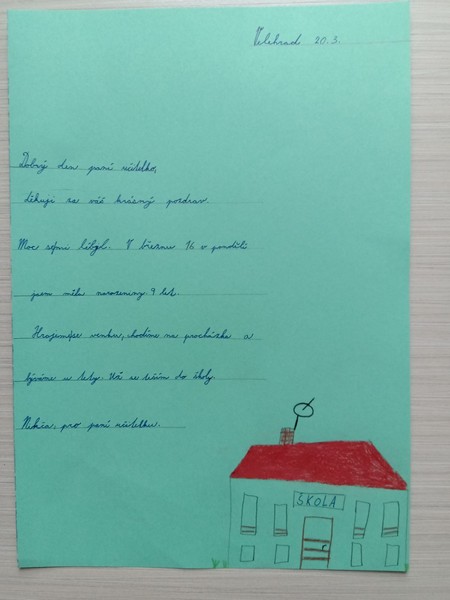 Velehrad 20.3.
Dobrý den paní učitelko,
děkuji za váš krásný pozdrav.
Moc se mi líbil. V březnu 16 v pondělí
jsem měla narozeniny 9 let.
Hrajeme se venku, chodíme na procházke a
býváme u tety. Už se těším do školy.
pro paní učitelku.
ŠKOLA